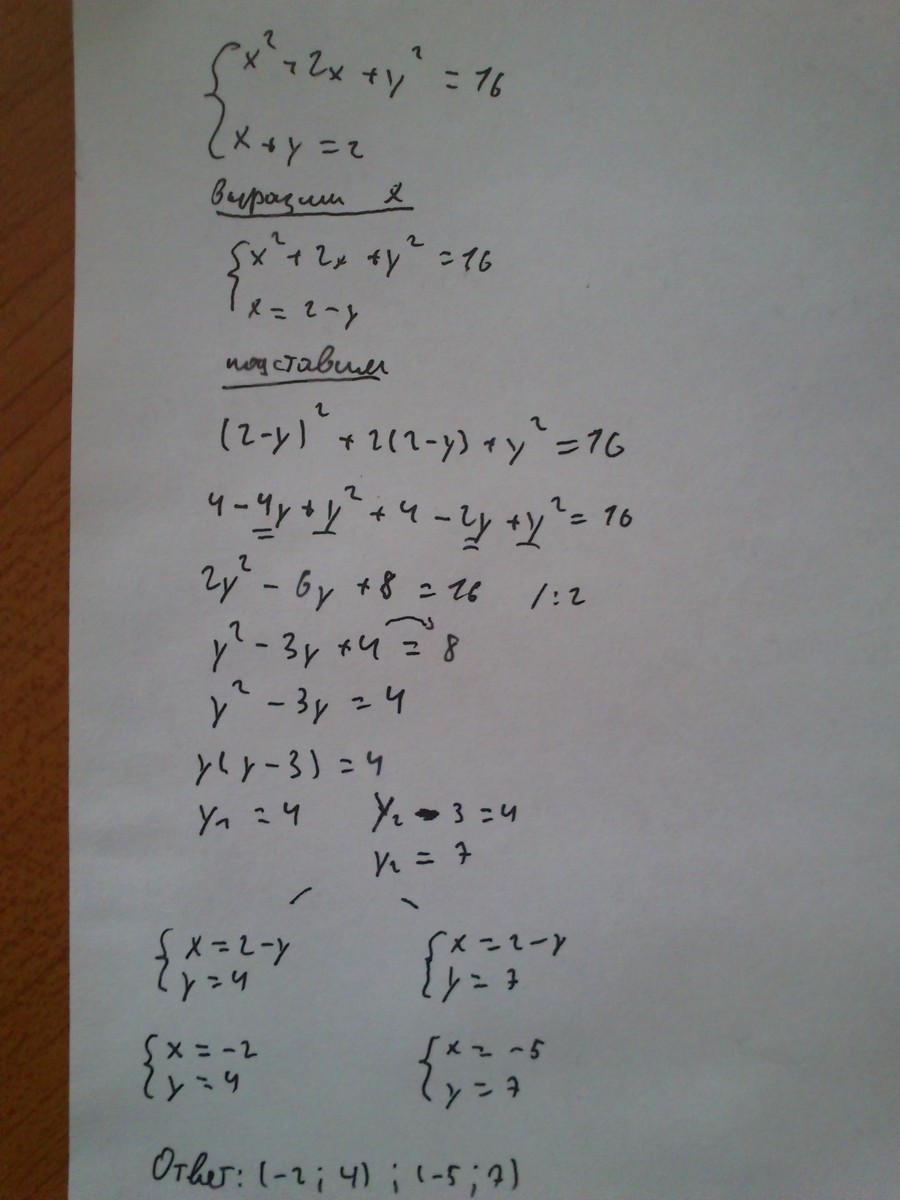 x² + 2x + y² = 16
x + y = 2
выразим x
x² + 2x + y² = 16
x = 2 - y
подставим
(2-y)² + 2(2-y) + y² = 16
4 - 4y + y² + 4 - 2y + y² = 16
2y² - 6y + 8 = 16 /:2
y² - 3y + 4 = 8
y² - 3y = 4
y(y-3) = 4
y₁ = 4 y₂ - 3 = 4
y₂ = 7
x = 2-y x = 2-y
y = 4 y = 7
x = -2 x = -5
y = 4 y = 7
Ответ: (-2; 4) ; (-5; 7)